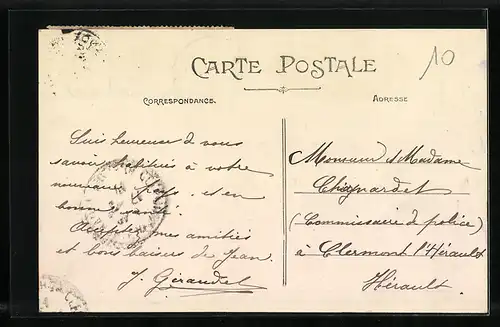 10
CARTE POSTALE
CORRESPONDANCE.
ADRESSE
Suis heureuse d vous
savoir habitués à votre
nouveau pays et en
bonne santé.
Acceptez mes amitiés
et bons baisers de Jean.
J. Géraudel
Monsieur & Madame
Chignardet
(Commissaire de police)
à Clermont l'Hérault
Hérault